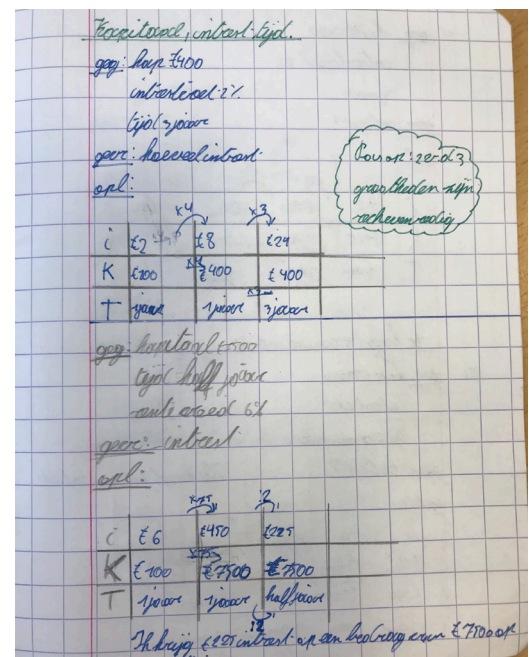 Kapitaal, intrest, tijd.
geg: kap €400
intrestvoet 2%
tijd 3 jaar
gevr: hoeveel intrest
opl:
Pas op: ze 3
grootheden zijn
rechtevenredig
x4 x3
i €2 €8 €24
x4
K €100 €400 €400
x3
T jaar 1 jaar 3 jaar
geg: kapitaal €7500
tijd half jaar
rente 6%
gevr: intrest
opl:
x75 :2
i €6 €450 €225
x75
K €100 €7500 €7500
T 1 jaar 1 jaar half jaar
:2
Ik krijg €225 intrest op een bedrag van €7500 op